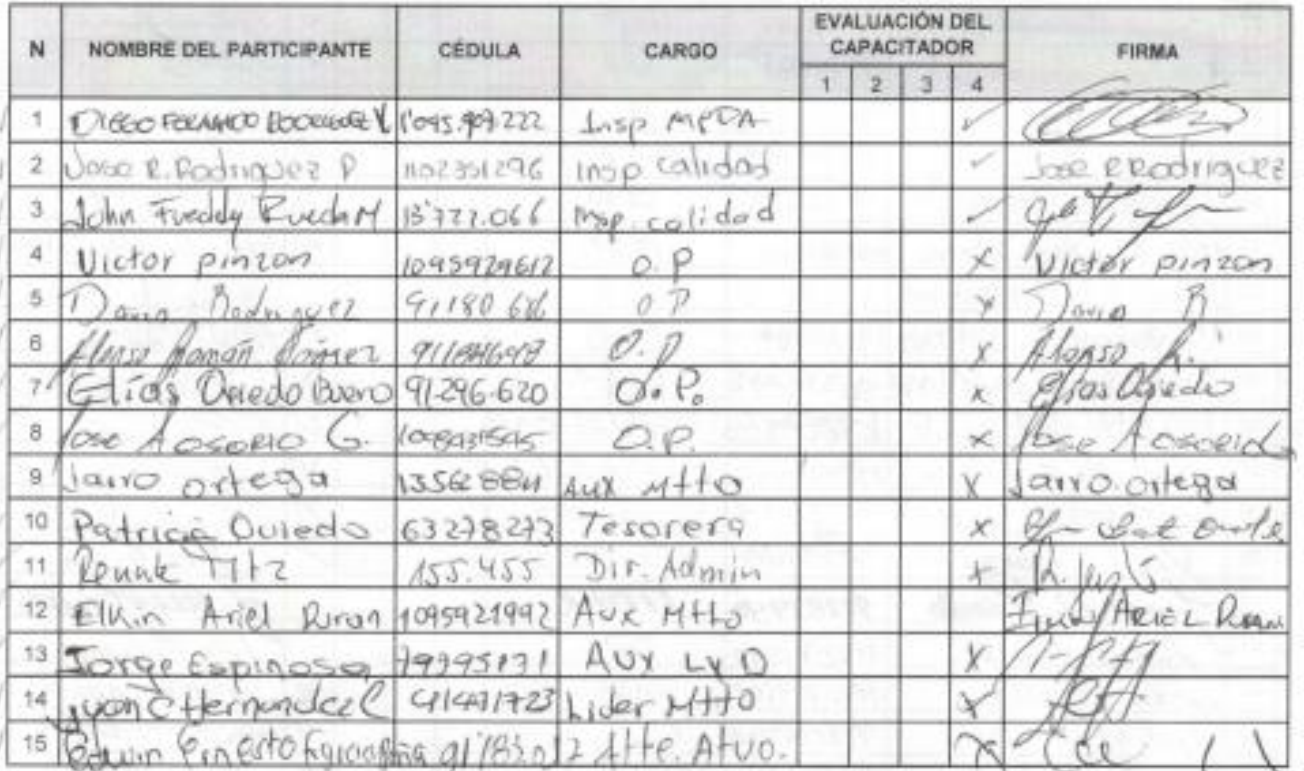 N NOMBRE DEL PARTICIPANTE CÉDULA CARGO EVALUACIÓN DEL CAPACITADOR FIRMA
1 2 3 4
1 DIEGO FERNANDO V 1'095.909.222 Insp MPDA ✓
2 Jose R. Rodriguez P 1102351296 Insp calidad ✓ Jose R Rodriguez
3 John Freddy Rueda M 13'722.066 Insp. calidad ✓
4 Victor pinzon 1095929612 O.P x Victor pinzon
5 Dario Rodriguez 91180 686 O P x Dario R
6 Alonso Román O.P x Alonso R.
7 Elías Oviedo 91.296.620 O.P. x Elias Oviedo
8 Jose A OSORIO G. O.P. x Jose A osorio
9 Jairo ortega Aux Mtto X Jairo ortega
10 Patricia Oviedo 63278273 Tesorera x
11 Mtz 155.455 Dir. Admin x
12 Elkin Ariel Duran 1095921992 Aux Mtto ARIEL DURAN
13 Jorge Espinosa 79395131 Aux LyD X
14 C Hernandez C Lider Mtto x
15 Edwin Ernesto x